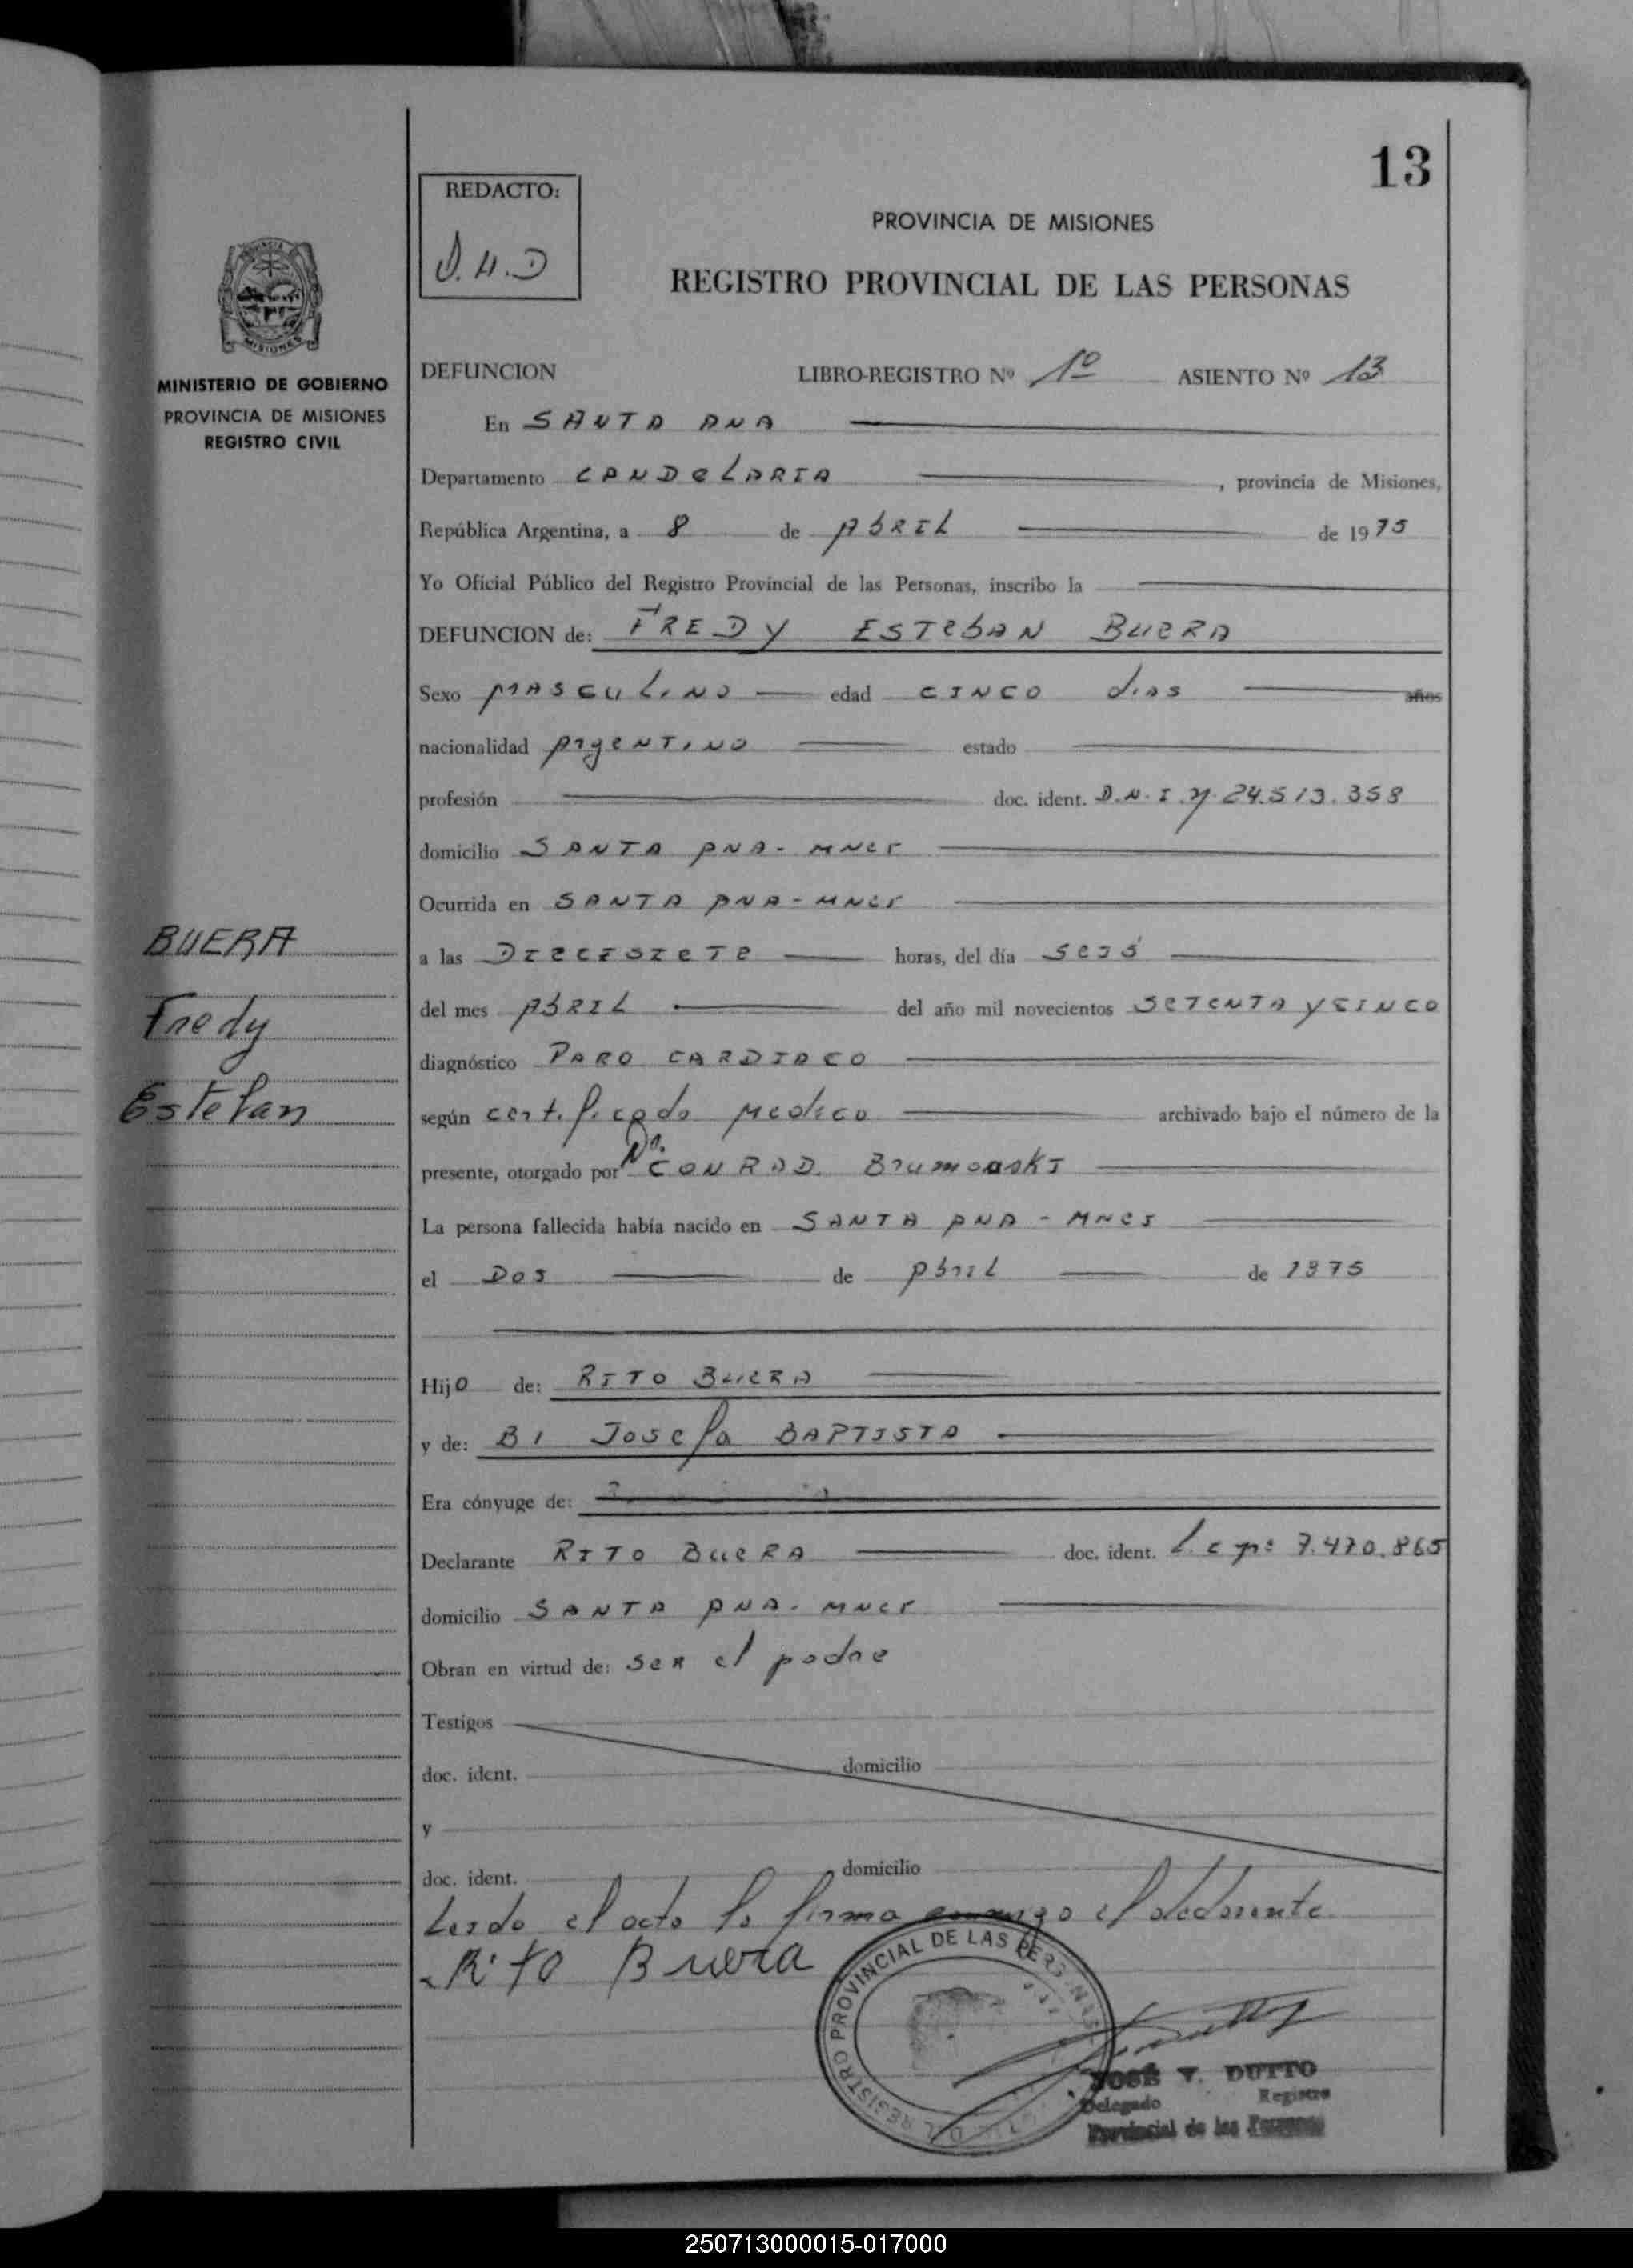 13
REDACTO:
D.H.D
PROVINCIA DE MISIONES
REGISTRO PROVINCIAL DE LAS PERSONAS
MISIONES
MINISTERIO DE GOBIERNO
PROVINCIA DE MISIONES
REGISTRO CIVIL
DEFUNCION LIBRO-REGISTRO Nº 1º ASIENTO Nº 13
En SANTA ANA
Departamento CANDeLARIA, provincia de Misiones,
República Argentina, a 8 de AbRIL de 1975
Yo Oficial Público del Registro Provincial de las Personas, inscribo la
DEFUNCION de: FREDY ESTebAN BUeRA
Sexo MASCULINO edad CINCO dias años
nacionalidad ArgeNTINO estado
profesión doc. ident. D.N.I. Nº 24.513.358
domicilio SANTA ANA - MNes
Ocurrida en SANTA ANA - MNes
a las DIeCISIeTe horas, del día SeIS
del mes AbRIL del año mil novecientos SeTeNTA y CINCO
diagnóstico PARO CARDIACO
según certificado Medico archivado bajo el número de la
presente, otorgado por Dr. CONRAD.
La persona fallecida había nacido en SANTA ANA - MNes
el DOS de Abril de 1975
Hijo de: RITO BUeRA
y de: BI Josefa BAPTISTA
Era cónyuge de:
Declarante RITO BUeRA doc. ident. L.e Nº: 7.470.865
domicilio SANTA ANA - MNes
Obran en virtud de: ser el padre
Testigos
doc. ident. domicilio
y
doc. ident. domicilio
Leido el acta la firma conmigo el declarante.
Rito Buera
BUERA
Fredy
Esteban
REGISTRO PROVINCIAL DE LAS PERSONAS
JOSÉ V. DUTTO
Delegado Registro
Provincial de las Personas
250713000015-017000